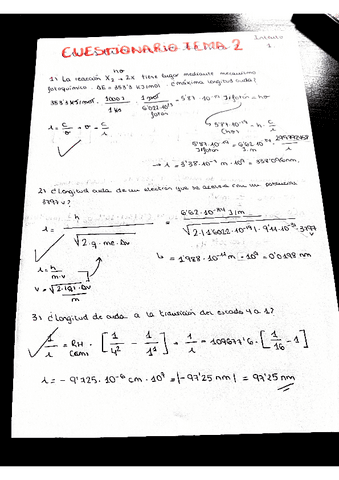 CUESTIONARIO TEMA 2
Intento 1.
1) La reacción X2 → 2X tiene lugar mediante mecanismo
hν
fotoquímico. ΔE = 353'3 kJ/mol. ¿máxima longitud onda?
353'3 kJ/mol · 1000 J / 1 kJ · 1 mol / 6'022·10²³ fotón = 5'87·10⁻¹⁹ J/fotón = hν
λ = c/ν → ν = c/λ
5'87·10⁻¹⁹ = h · c/λ
5'87·10⁻¹⁹ J/fotón = 6'62·10⁻³⁴ J/m · 299792458/λ
→ λ = 3'38·10⁻⁷ m · 10⁹ = 338'096 nm,
2) ¿Longitud onda de un electrón que se acelera con un potencial
3797 v?
λ = h / √2·q·me·Δv = 6'62·10⁻³⁴ J/m / √2·1'6022·10⁻¹⁹·9'11·10⁻³¹·3797 v
λ = h / m·v
v = √2·|q|·Δv / m
λ = 1'988·10⁻¹¹ m · 10⁹ = 0'0198 nm
3) ¿Longitud de onda a la transición del estado 4 a 1?
1/λ = RH (cm) · [1/4² − 1/1²] → 1/λ = 109677'6 · [1/16 − 1]
λ = −9'725·10⁻⁶ cm · 10⁷ = |−97'25 nm| = 97'25 nm